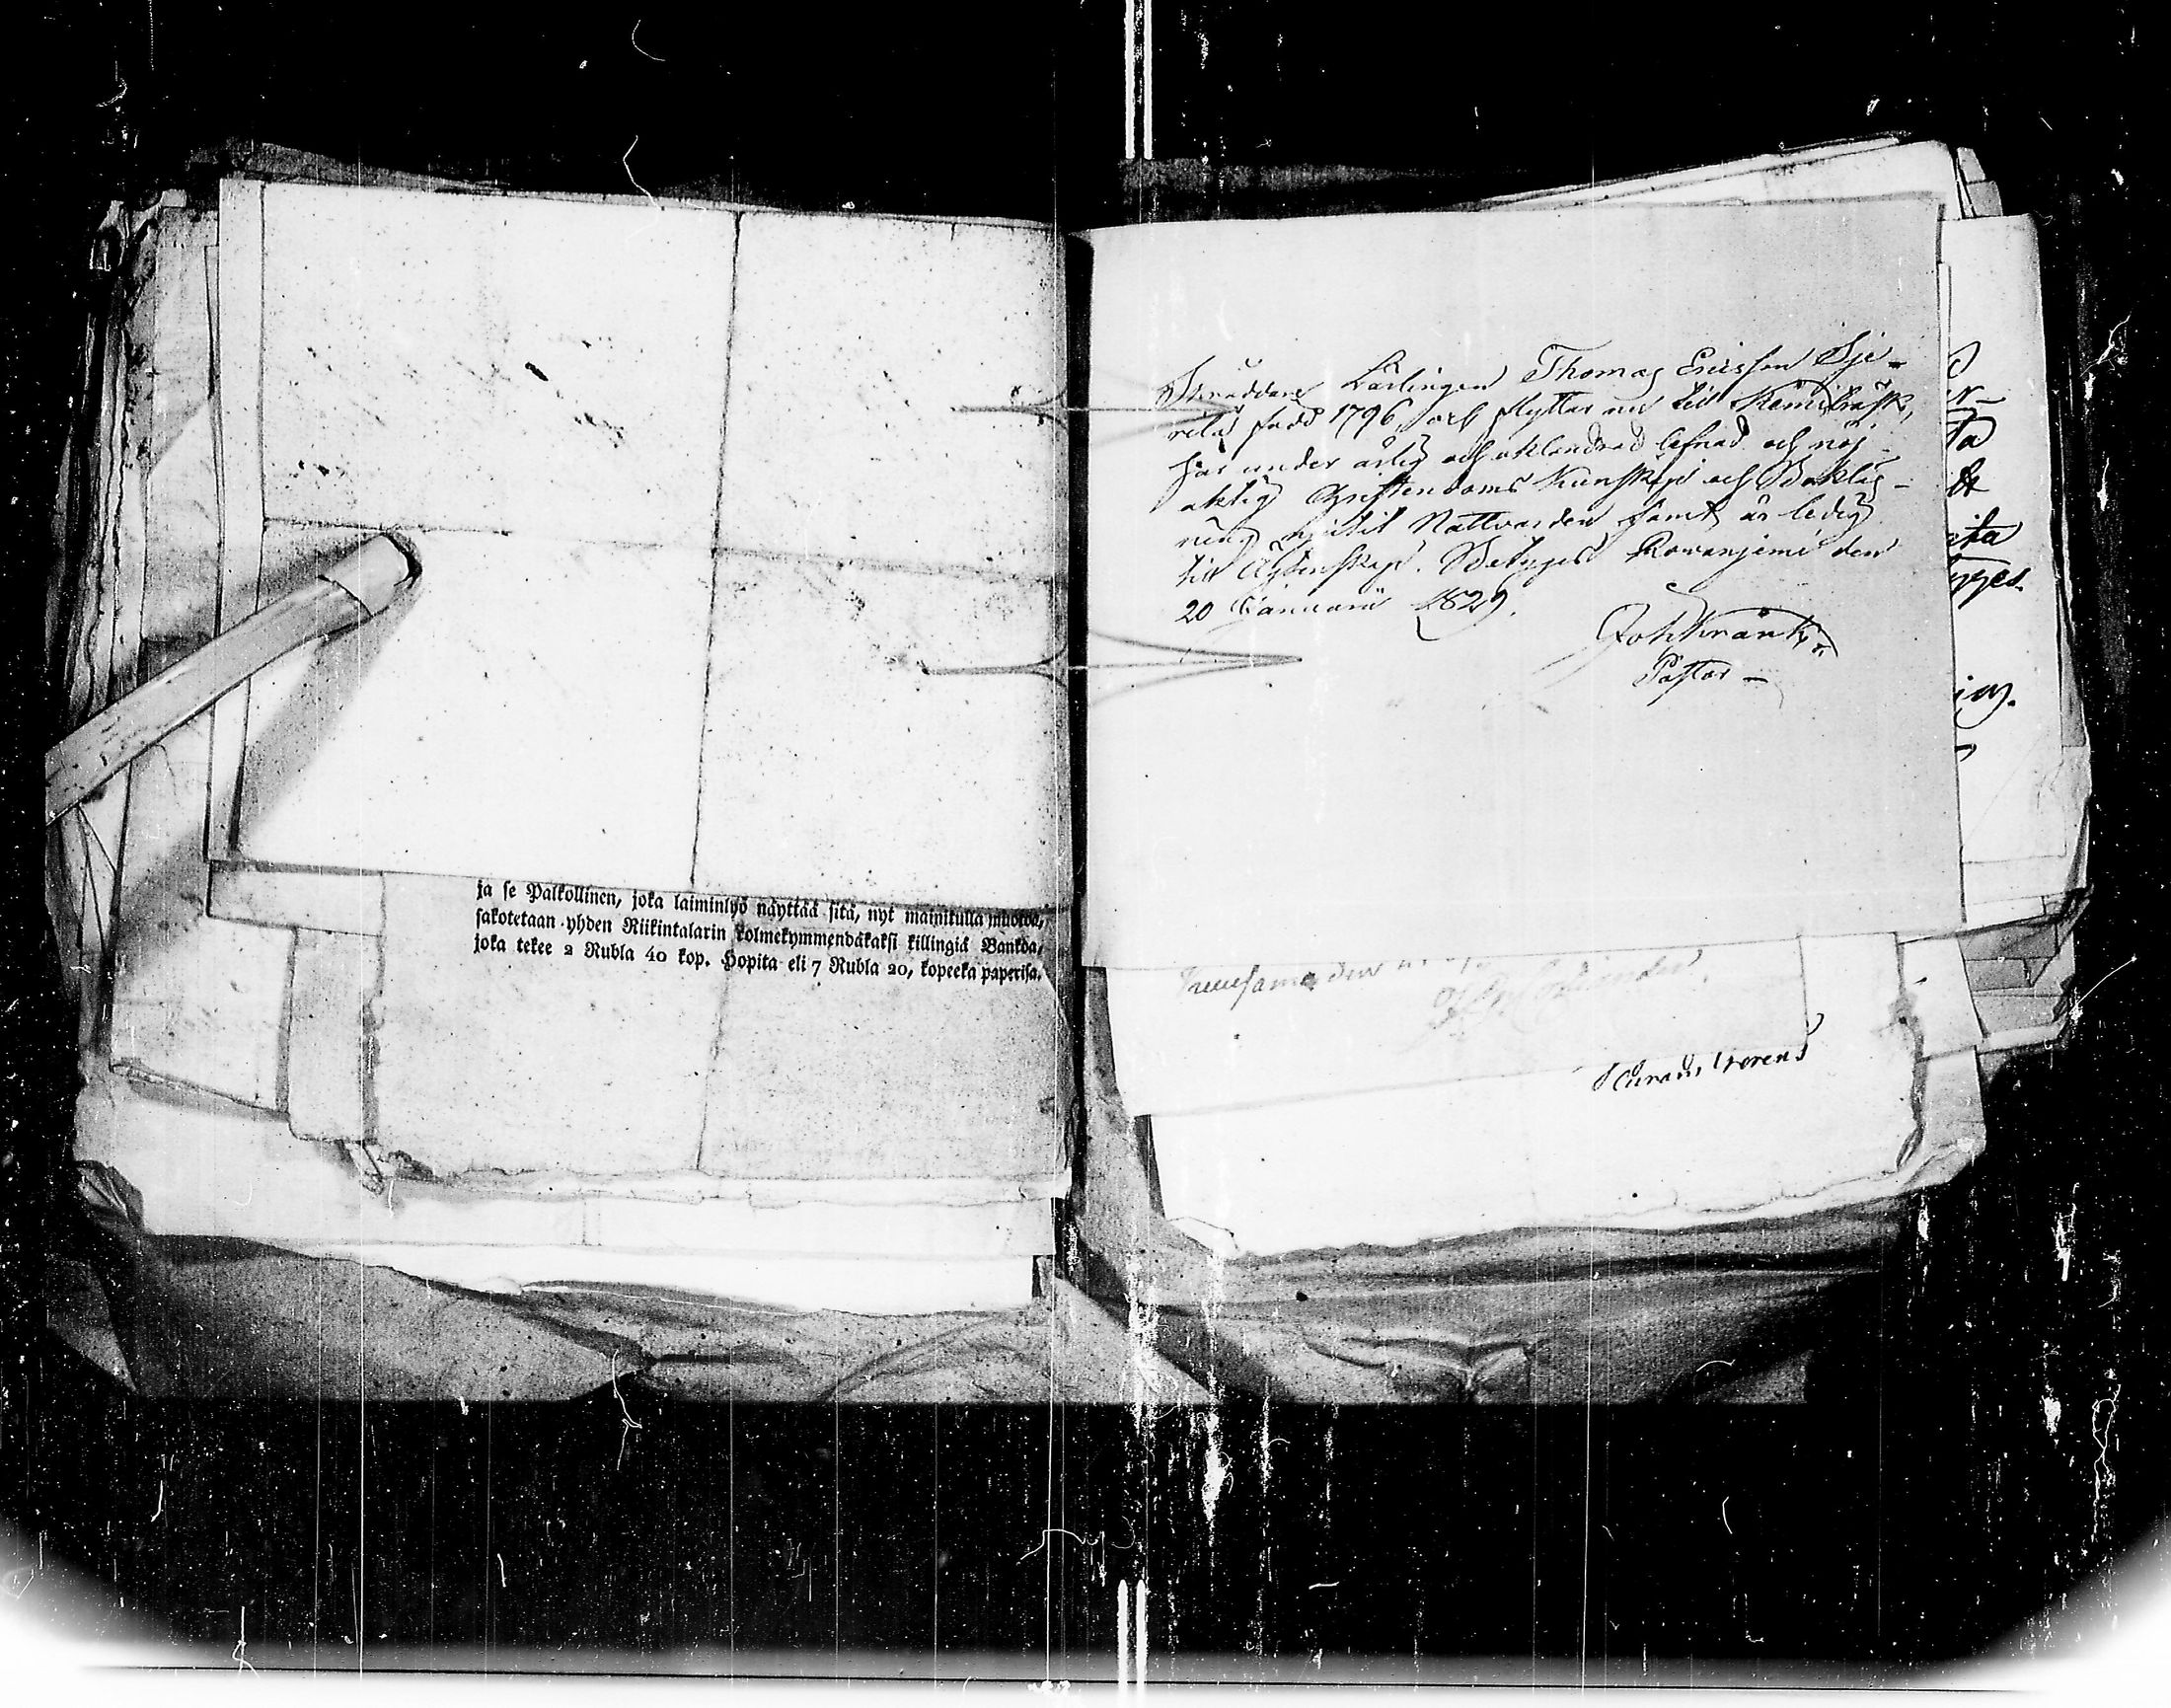 ja se Palkollinen, joka laiminlyö näyttää sitä, nyt mainitulla muotoa,
sakotetaan yhden Riikintalarin kolmekymmendäkaksi killingiä Bankoa,
joka tekee 2 Rubla 40 kop. Hopita eli 7 Rubla 20, kopeeka paperisa.
Skräddare Lärlingen Thomas Ericsson Sje-
relä född 1796, och flyttar nu till Kemiträsk,
har under ärlig och oklandrad lefnad och nöj-
aktig Christendoms Kunskap och Bokläs-
ning bijstit Nattvarden samt är ledig
till Äktenskap. Betygas Rovaniemi den
20 Januarii 1829.
Joh Wränk
Pastor
ta
ita
yges.
Kuusamo den